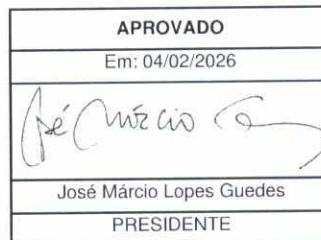 APROVADO
Em: 04/02/2026
José Márcio
José Márcio Lopes Guedes
PRESIDENTE